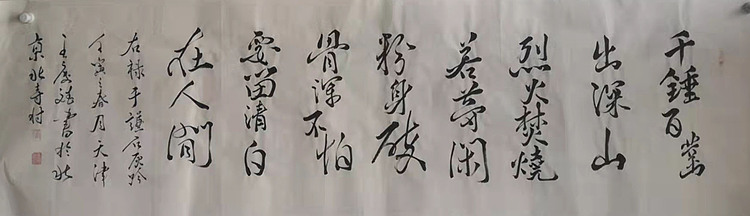 千錘百凿
出深山
烈火焚燒
若等闲
粉身碎
骨浑不怕
要留清白
在人间
右録于謙石灰吟
壬寅春月天津
王慶書於北
京